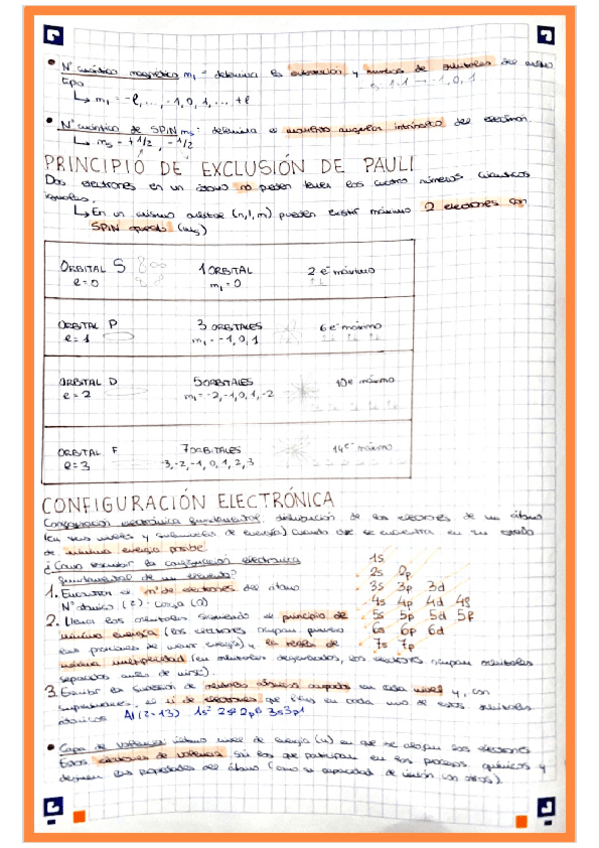 • Nº cuántico magnético ml = determina la orientación y número de orbitales del mismo
tipo
↳ ml = -l, ..., -1, 0, 1, ... +l
• Nº cuántico de SPIN ms: determina el momento angular intrínseco del electrón.
↳ ms = +1/2, -1/2
PRINCIPIÓ DE EXCLUSIÓN DE PAULI
Dos electrones en un átomo no pueden tener los cuatro números cuánticos
iguales.
↳ En un mismo orbital (n, l, m) pueden existir máximo 2 electrones con
SPIN opuesto (ms)
ORBITAL S 1 ORBITAL 2 e⁻ máximo
l = 0 ml = 0
ORBITAL P 3 ORBITALES 6 e⁻ máximo
l = 1 ml = -1, 0, 1
ORBITAL D 5 ORBITALES 10 e⁻ máximo
l = 2 ml = -2, -1, 0, 1, -2
ORBITAL F 7 ORBITALES 14 e⁻ máximo
l = 3 -3, -2, -1, 0, 1, 2, 3
CONFIGURACIÓN ELECTRÓNICA
Configuración electrónica fundamental: distribución de los electrones de un átomo
(en sus niveles y subniveles de energía) cuando se encuentra en su estado
de mínima energía posible.
¿Cómo escribir la configuración electrónica
fundamental de un elemento?
1. Encontrar el nº de electrones del átomo
Nº atómico (Z) - carga (Q)
2. Llenar los orbitales siguiendo el principio de
mínima energía (los electrones ocupan primero
las posiciones de menor energía) y la regla de
máxima multiplicidad (en orbitales degenerados, los electrones ocupan orbitales
separados antes de unirse).
1s
2s 2p
3s 3p 3d
4s 4p 4d 4f
5s 5p 5d 5f
6s 6p 6d
7s 7p
3. Escribir la sucesión de orbitales atómicos ocupados en cada nivel y, con
superíndices, el nº de electrones que hay en cada uno de estos orbitales
atómicos Al (Z=13) 1s² 2s² 2p⁶ 3s² 3p¹
• Capa de valencia: último nivel de energía (n) en que se alojan los electrones
Estos electrones de valencia son los que participan en los procesos químicos y
definen las propiedades del átomo (como su capacidad de unión con otros).